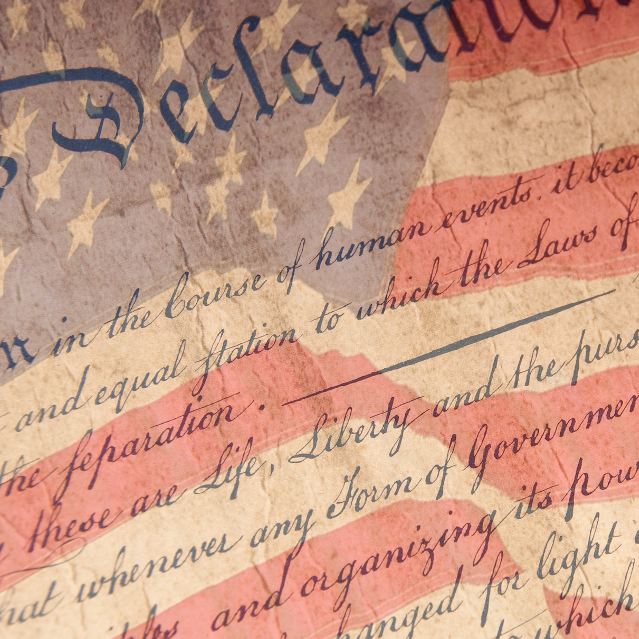 Declaration
n in the Course of human events. it beco
and equal station to which the Laws of
the separation.
these are Life, Liberty and the purs
hat whenever any Form of Governmen
and organizing its pow
hanged for light
to which